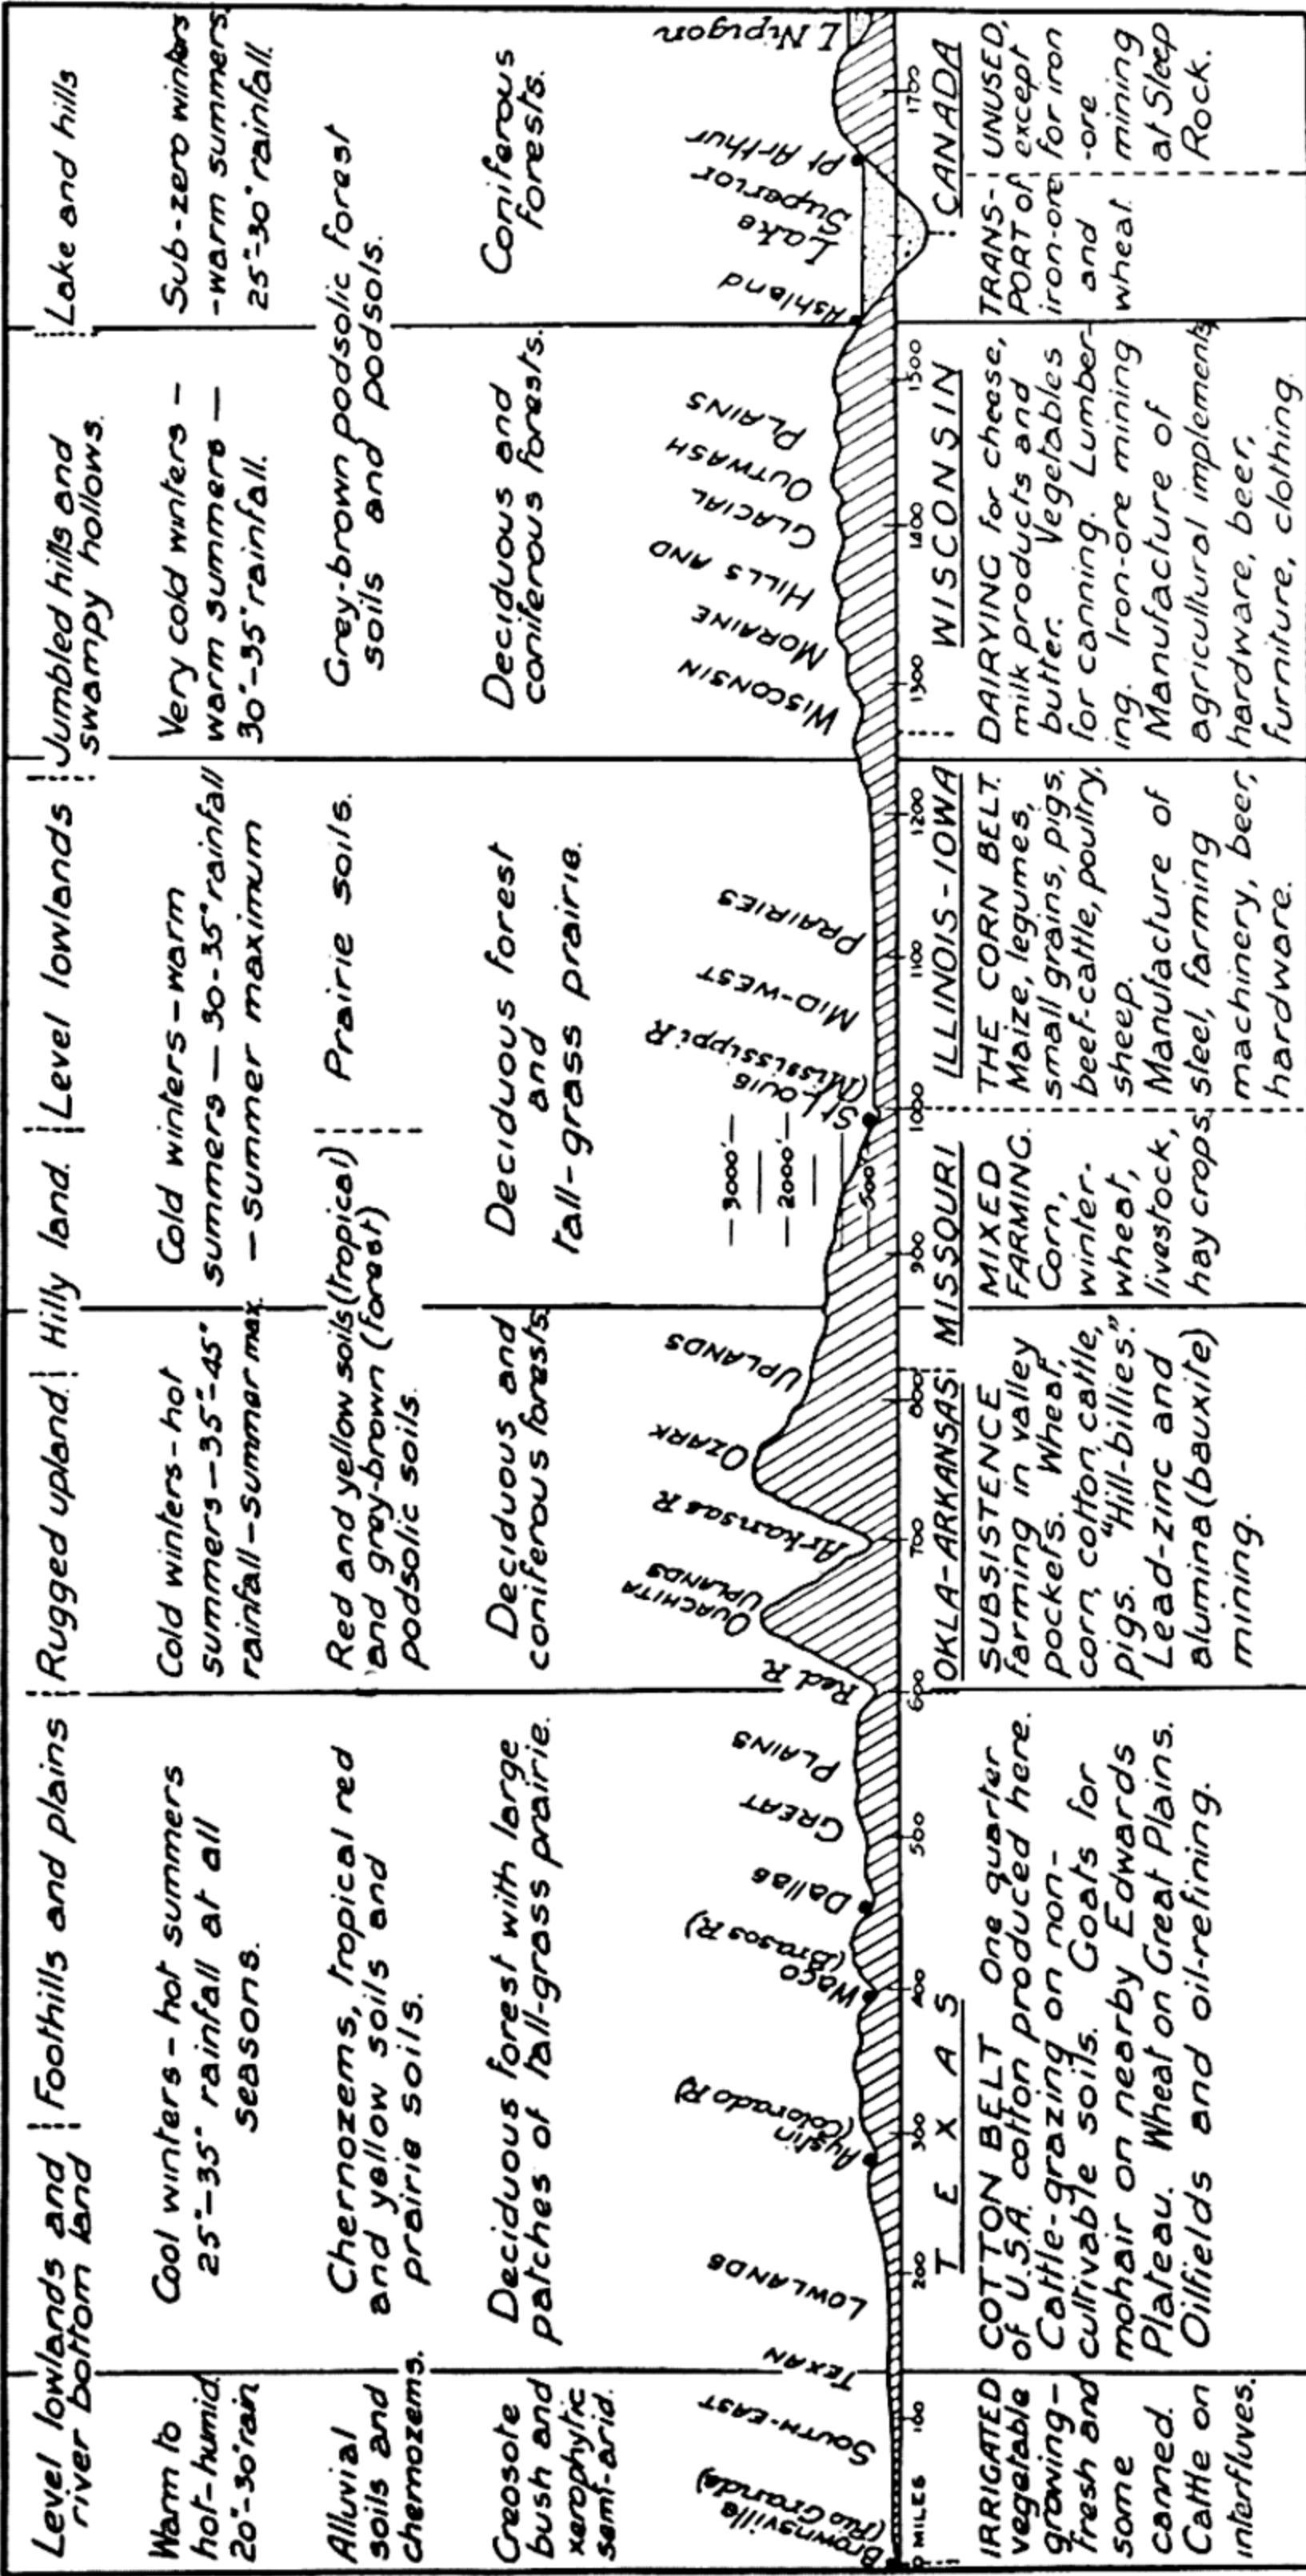 Level lowlands and
river bottom land
Foothills and plains
Rugged upland.
Hilly land.
Level lowlands
Jumbled hills and
swampy hollows.
Lake and hills
Warm to
hot-humid.
20"-30" rain
Cool winters - hot summers
25"-35" rainfall at all
seasons.
Cold winters - hot
summers - 35"-45"
rainfall - summer max.
Cold winters - warm
summers - 30-35" rainfall
- summer maximum
Very cold winters -
warm summers -
30"-35" rainfall.
Sub-zero winters
-warm summers
25"-30" rainfall.
Alluvial
soils and
chernozems.
Chernozems, tropical red
and yellow soils and
prairie soils.
Red and yellow soils (tropical)
and grey-brown (forest)
podsolic soils.
Prairie soils.
Grey-brown podsolic forest
soils and podsols.
Creosote
bush and
xerophytic
semi-arid.
Deciduous forest with large
patches of tall-grass prairie.
Deciduous and
coniferous forests.
Deciduous forest
and
tall-grass prairie.
Deciduous and
coniferous forests.
Coniferous
forests.
Brownsville
(Rio Grande)
SOUTH-EAST
TEXAN
LOWLANDS
Austin
(Colorado R)
Waco
(Brasos R)
Dallas
GREAT
PLAINS
Red R
OUACHITA
UPLANDS
Arkansas R
OZARK
UPLANDS
3000'
2000'
500'
St Louis
(Mississippi R
MID-WEST
PRAIRIES
WISCONSIN
MORAINE
HILLS AND
GLACIAL
OUTWASH
PLAINS
Ashland
Lake
Superior
Pt Arthur
L Nipigon
0 MILES
100
200
300
400
500
600
700
800
900
1000
1100
1200
1300
1400
1500
1700
TEXAS
OKLA-ARKANSAS
MISSOURI
ILLINOIS-IOWA
WISCONSIN
CANADA
IRRIGATED
vegetable
growing -
fresh and
some
canned.
Cattle on
interfluves.
COTTON BELT One quarter
of U.S.A. cotton produced here.
Cattle-grazing on non-
cultivable soils. Goats for
mohair on nearby Edwards
Plateau. Wheat on Great Plains.
Oilfields and oil-refining.
SUBSISTENCE
farming in valley
pockets. Wheat,
corn, cotton, cattle,
pigs. "Hill-billies."
Lead-zinc and
alumina (bauxite)
mining.
MIXED
FARMING.
Corn,
winter-
wheat,
livestock,
hay crops.
THE CORN BELT.
Maize, legumes,
small grains, pigs,
beef-cattle, poultry,
sheep.
Manufacture of
steel, farming
machinery, beer,
hardware.
DAIRYING for cheese,
milk products and
butter. Vegetables
for canning. Lumber-
ing. Iron-ore mining
Manufacture of
agricultural implements,
hardware, beer,
furniture, clothing.
TRANS-
PORT of
iron-ore
and
wheat.
UNUSED,
except
for iron
-ore
mining
at Sleep
Rock.